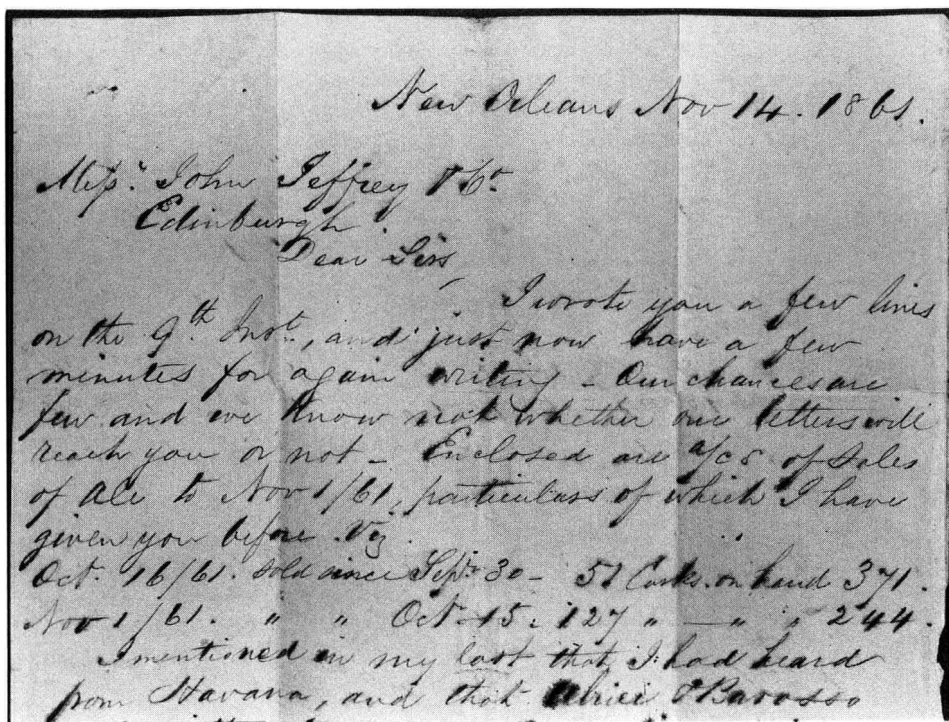 New Orleans Nov 14. 1861.
Messrs. John Jeffrey & Co.
Edinburgh.
Dear Sirs,
I wrote you a few lines
on the 9th Inst., and just now have a few
minutes for again writing - Our chances are
few and we know not whether our letters will
reach you or not - Enclosed are a/cs of Sales
of Ale to Nov 1/61, particulars of which I have
given you before. Viz
Oct. 16/61. Sold since Sept. 30 - 51 Casks. on hand 371.
Nov 1/61. " " Oct. 15. 127 " - " " 244.
I mentioned in my last that I had heard
from Havana, and that & Barosso